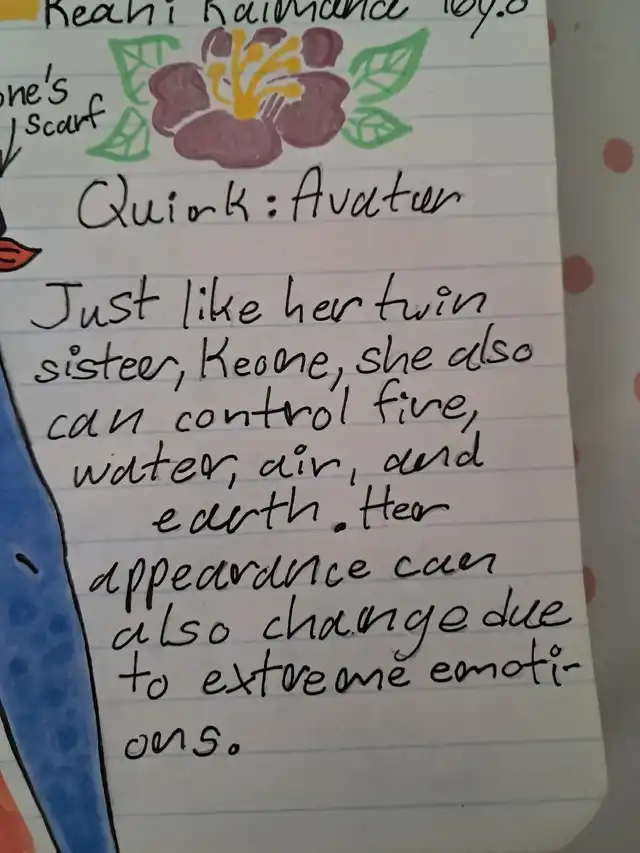 Keahi Kaimana 16y.o
one's
scarf
Quirk: Avatar
Just like her twin
sister, Keone, she also
can control fire,
water, air, and
earth. Her
appearance can
also change due
to extreme emoti-
ons.